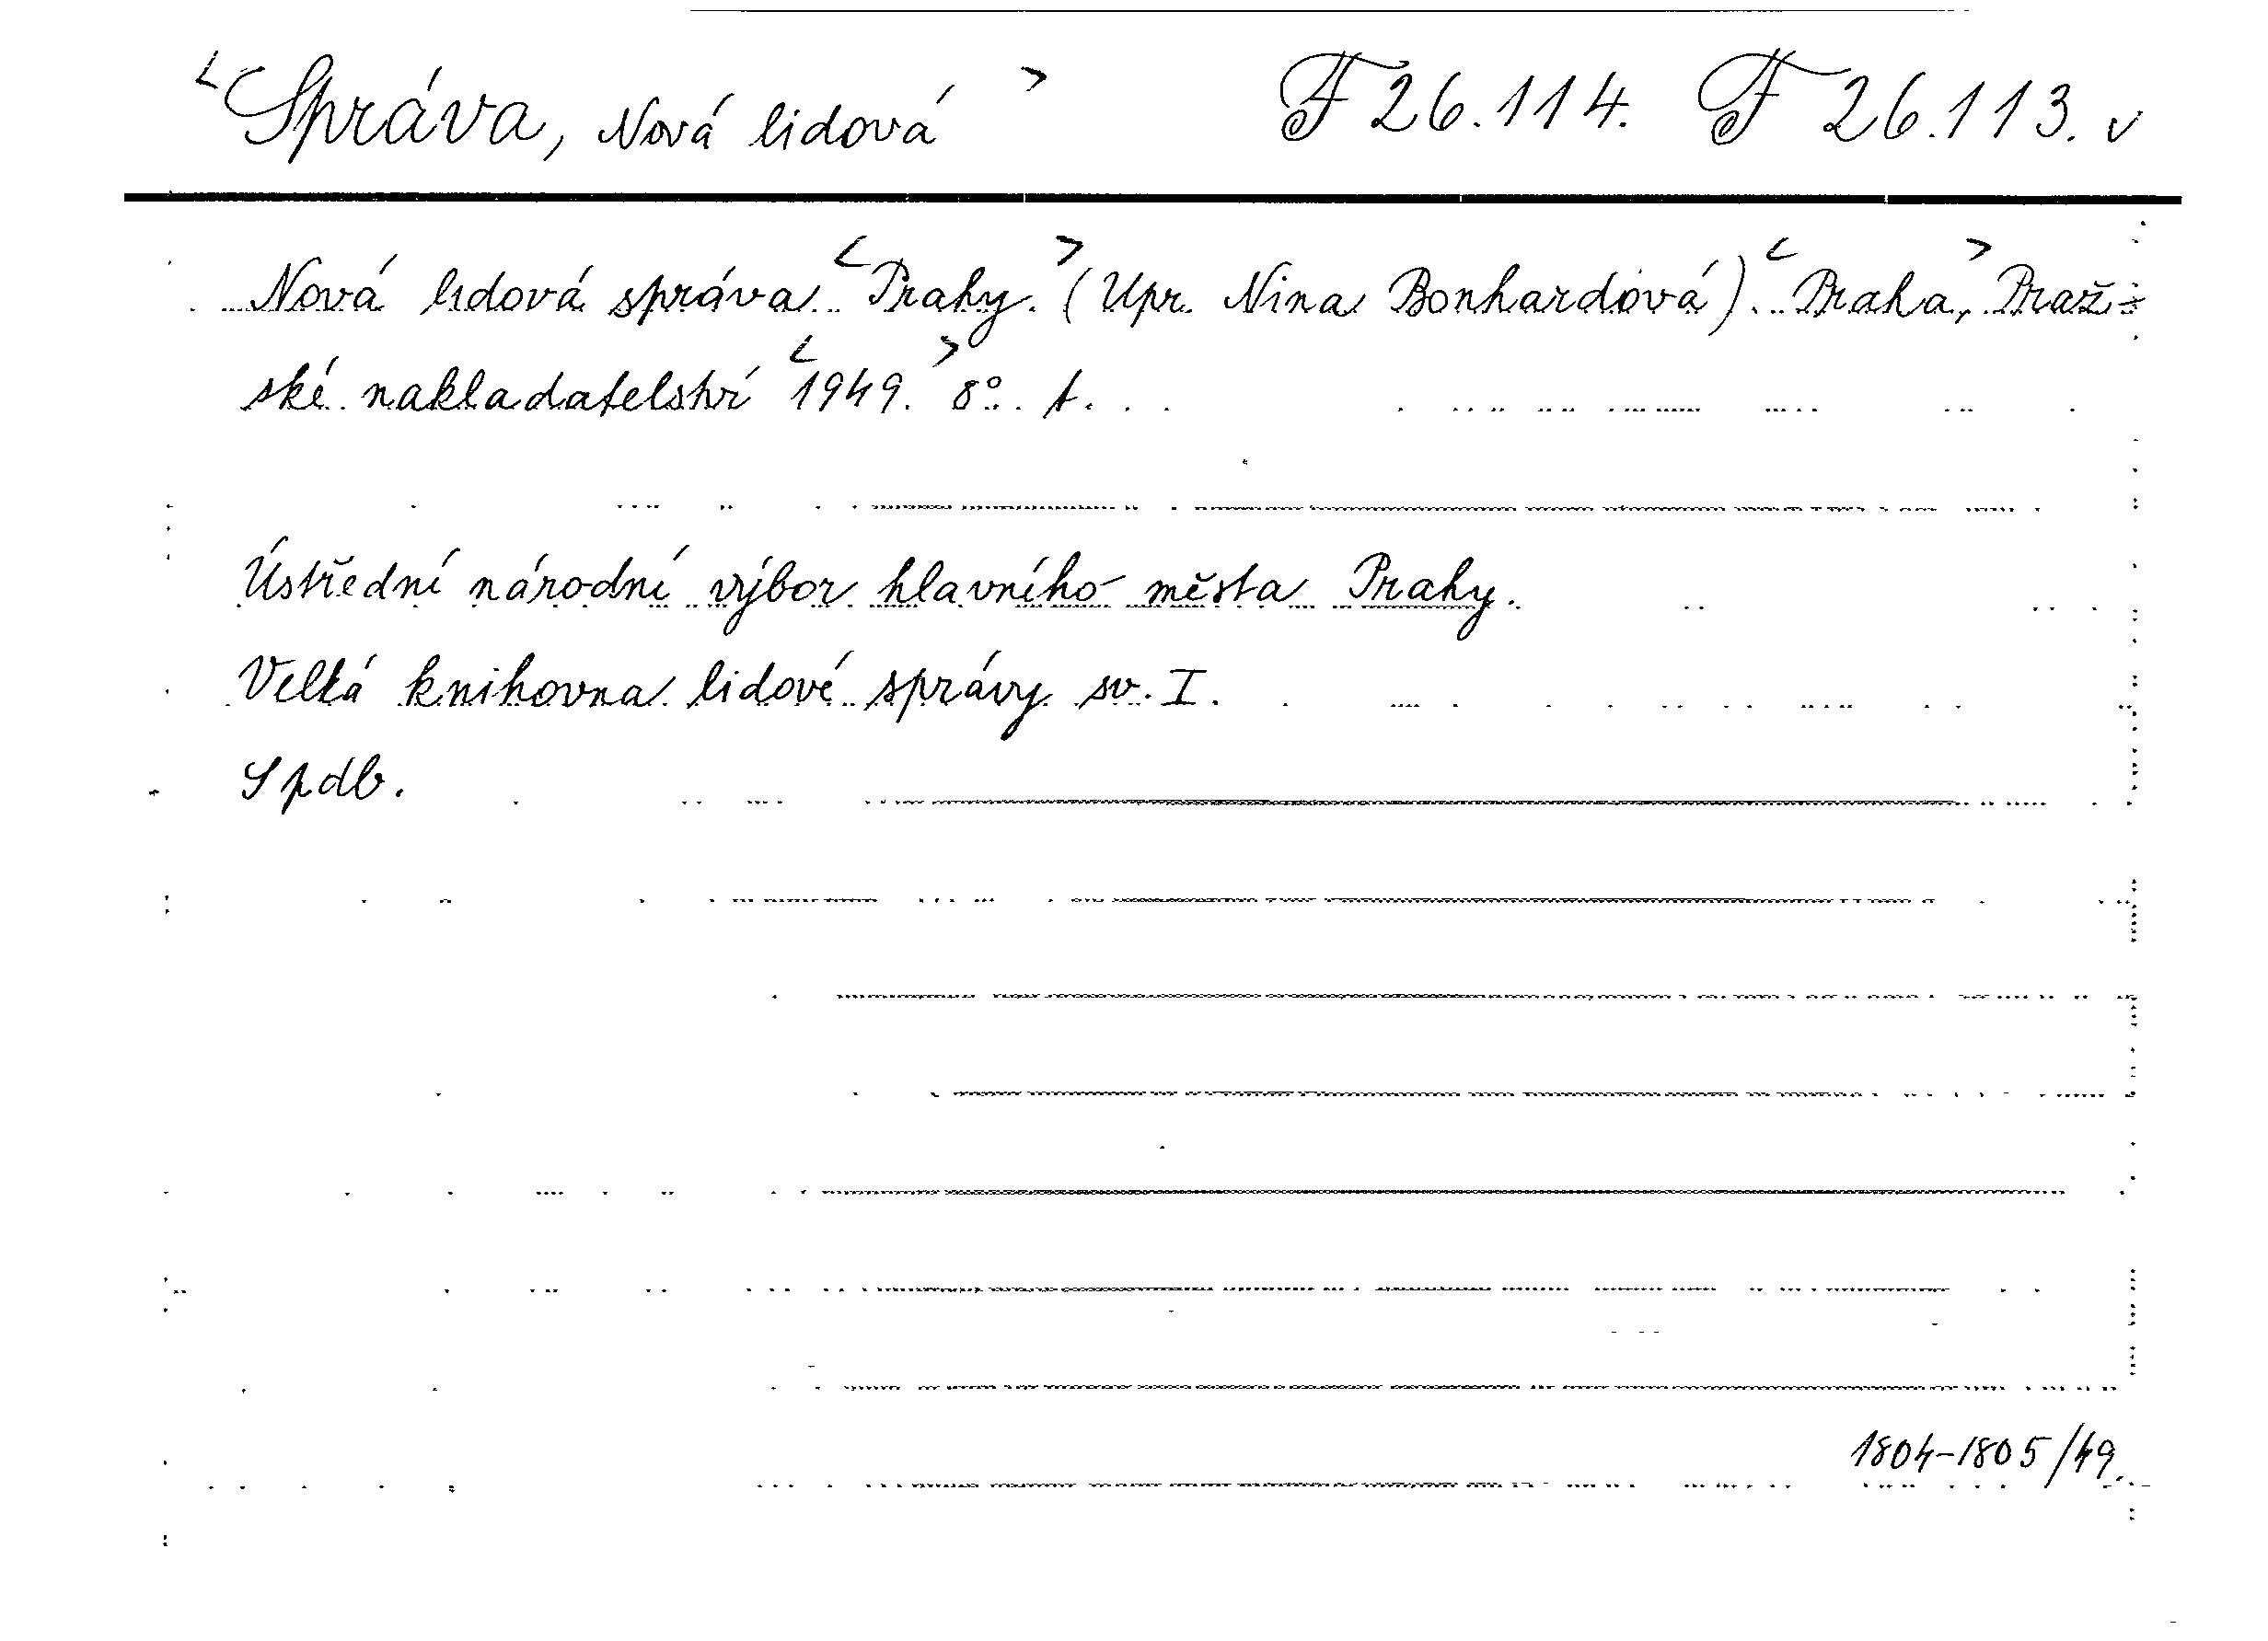 <Správa, Nová lidová> F 26.114. F 26.113. v
Nová lidová správa <Prahy.> (Upr. Nina Bonhardová). <Praha,> Praž-
ské nakladatelství <1949.> 8°. t.
Ústřední národní výbor hlavního města Prahy.
Velká knihovna lidové správy sv. I.
Spdb.
1804-1805/49.